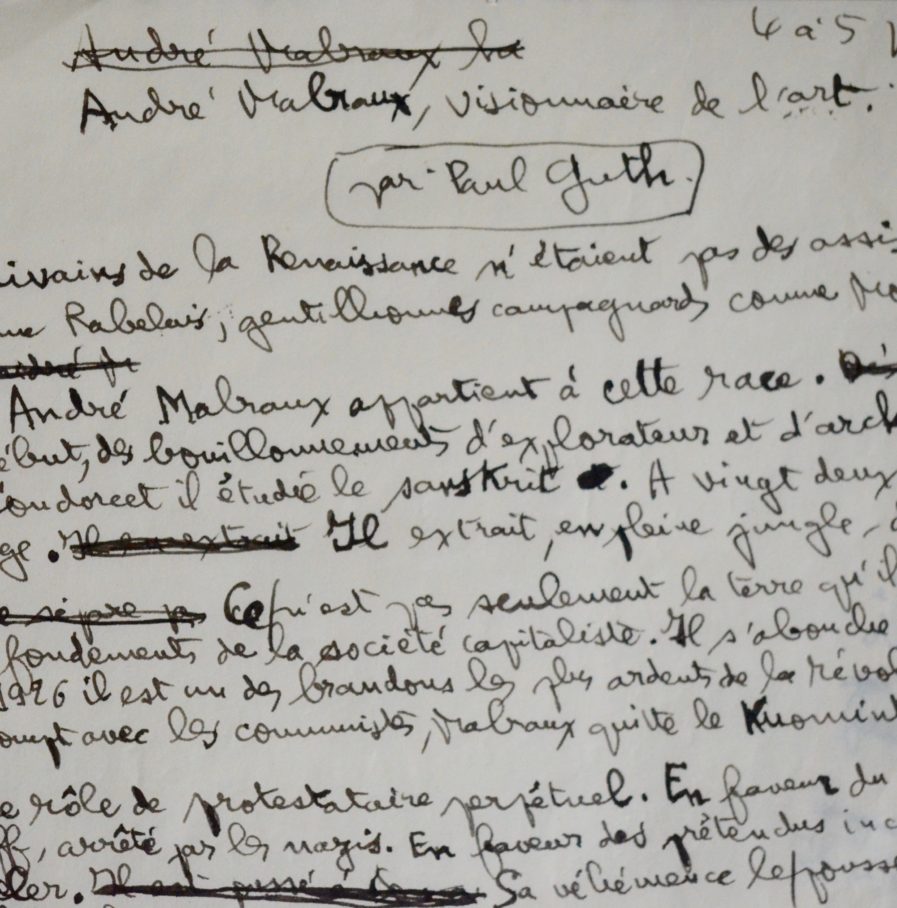 4 à 5
André Malraux la
André Malraux, visionnaire de l'art.
par Paul Guth.
ivains de la Renaissance n'étaient pas des assis
me Rabelais, gentilhommes campagnards comme Mo
André Malraux appartient à cette race. Dès
ébut, des bouillonnements d'explorateur et d'arch
Condorcet il étudie le sanskrit. A vingt deux
ge. Il en extrait Il extrait, en pleine jungle,
Ce n'est pas seulement la terre qu'il
fondements de la société capitaliste. Il s'abouche
1926 il est un des brandons les plus ardents de la révol
ompt avec les communistes, Malraux quitte le Kuomint
e rôle de protestataire perpétuel. En faveur du
ff, arrêté par les nazis. En faveur des prétendus inc
ler. Sa véhémence le pousse